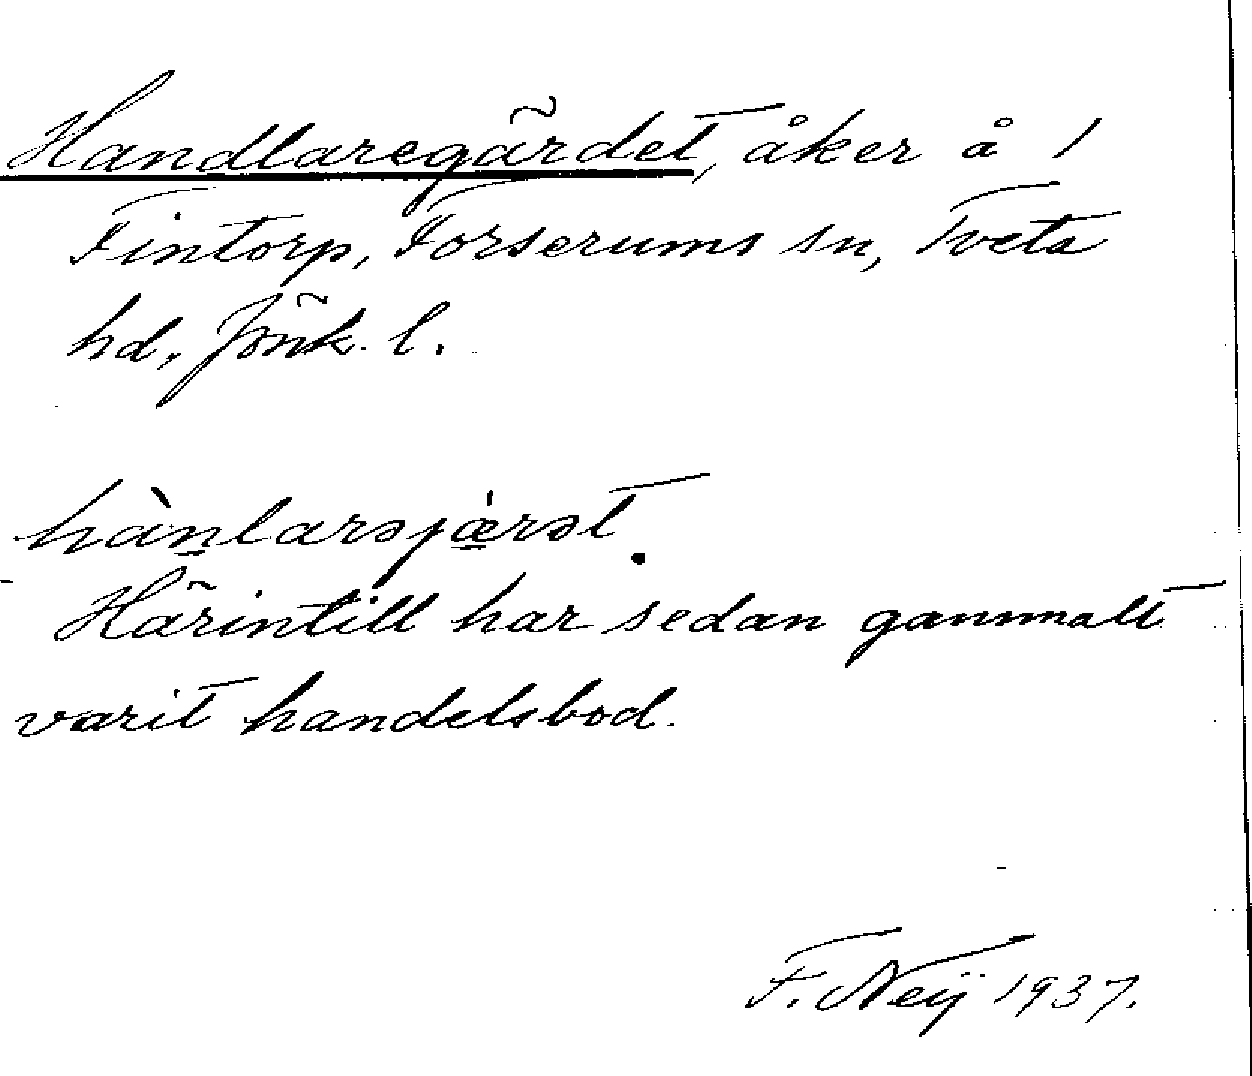 Handlaregärdet, åker å 1
Fintorp, Forserums sn, Tveta
hd, Jönk. l.
hàn̠larsjæ̠̍rət.
Härintill har sedan gammalt
varit handelsbod.
F. Neij 1937.